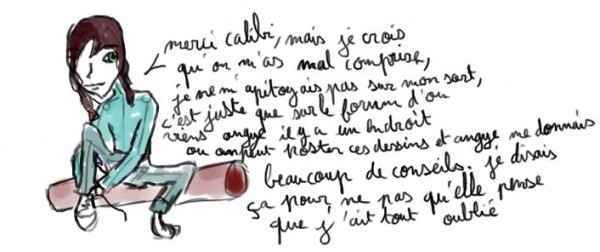 merci calibi, mais je crois
qu'on m'as mal comprise,
je ne m'apitoyais pas sur mon sort,
c'est juste que sur le forum d'ou
viens angye il y a un endroit
ou on peut poster ces dessins et angye me donnais
beaucoup de conseils. je disais
ça pour ne pas qu'elle pense
que j'ait tout oublié